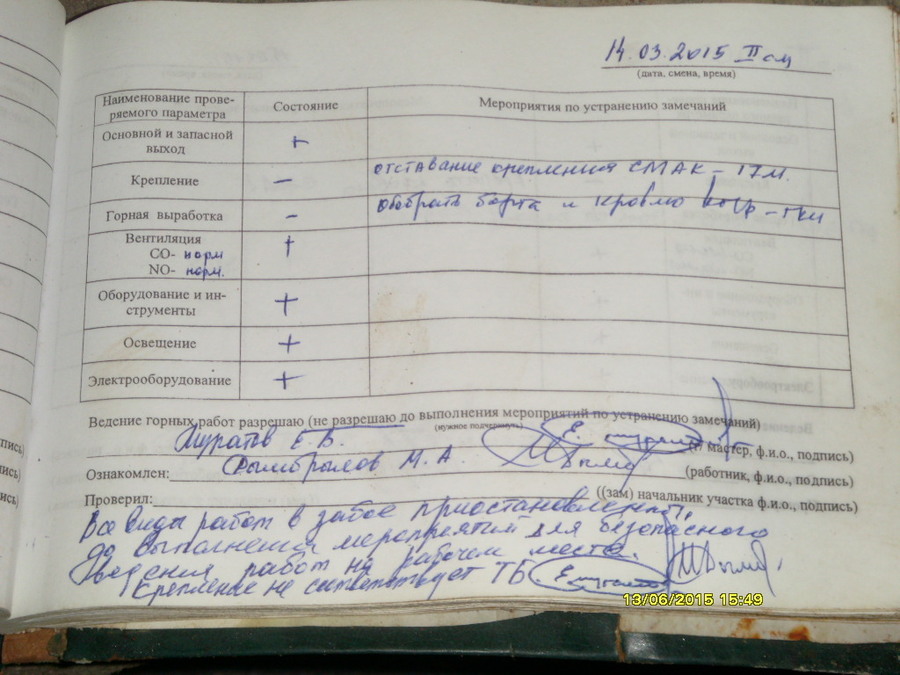 14.03.2015 II см
(дата, смена, время)
Наименование прове- Состояние Мероприятия по устранению замечаний
ряемого параметра
Основной и запасной +
выход
Крепление – отставание крепления СМАК – 17 м.
Горная выработка – обобрать борта и кровлю
Вентиляция +
СО- норм
NO- норм.
Оборудование и ин- +
струменты
Освещение +
Электрооборудование +
Ведение горных работ разрешаю (не разрешаю до выполнения мероприятий по устранению замечаний)
(нужное подчеркнуть)
Муратов Е.Б. мастер, ф.и.о., подпись)
Ознакомлен: М.А. (работник, ф.и.о., подпись)
Проверил: ((зам) начальник участка ф.и.о., подпись)
Все виды работ в забое приостановлены,
до выполнения мероприятий для безопасного
ведения работ на рабочем месте.
Крепление не соответствует ТБ
13/06/2015 15:49
пись)
пись)
ись)